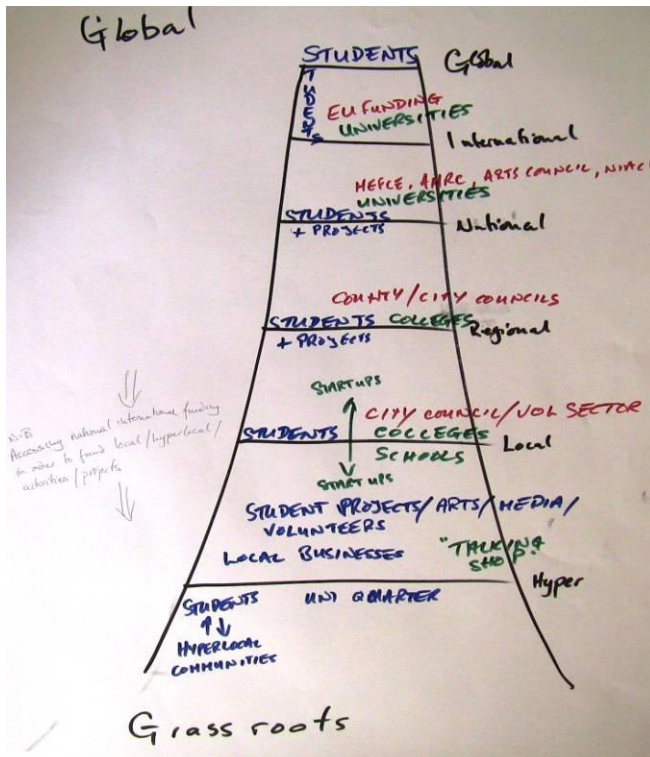 Global
STUDENTS Global
STUDENTS
EU FUNDING
UNIVERSITIES
International
HEFCE, AHRC, ARTS COUNCIL, NIAC
UNIVERSITIES
STUDENTS
+ PROJECTS National
COUNTY/CITY COUNCILS
STUDENTS COLLEGES Regional
+ PROJECTS
START UPS
CITY COUNCIL/VOL SECTOR
STUDENTS COLLEGES Local
SCHOOLS
START UPS
N.B
Accessing national international funding
in order to fund local/hyperlocal/
activities/projects
STUDENT PROJECTS/ARTS/MEDIA/
VOLUNTEERS
LOCAL BUSINESSES "TALKING
SHOP"
Hyper
STUDENTS UNI QUARTER
HYPERLOCAL
COMMUNITIES
Grass roots